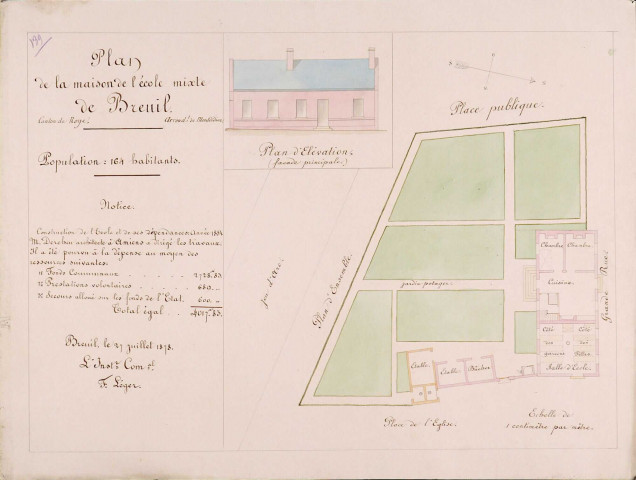 Plan
de la maison de l'école mixte
de Breuil.
Canton de Roye. Arrondt de Montdidier.
Population : 164 habitants.
Notice.
Construction de l'Ecole et de ses dépendances : année 1854
Mr architecte à Amiens a dirigé les travaux.
Il a été pourvu à la dépense au moyen des
ressources suivantes :
1° Fonds Communaux 2,728.83
2° Prestations volontaires 689.
3° Secours alloué sur les fonds de l'Etat. 600.
Total égal 4017.83.
Breuil, le 27 juillet 1878.
L'Instr Com al.
F. Léger.
Plan d'Elévation.
(façade principale.)
Place publique.
Plan d'Ensemble.
jeu d'Arc.
jardin potager.
Chambre Chambre
Cuisine.
Grande Rue.
Côté Côté
des des
garçons filles.
Salle d'Ecole.
Etable. Etable. Bûcher
Place de l'Eglise.
Echelle de
1 centimètre par mètre.